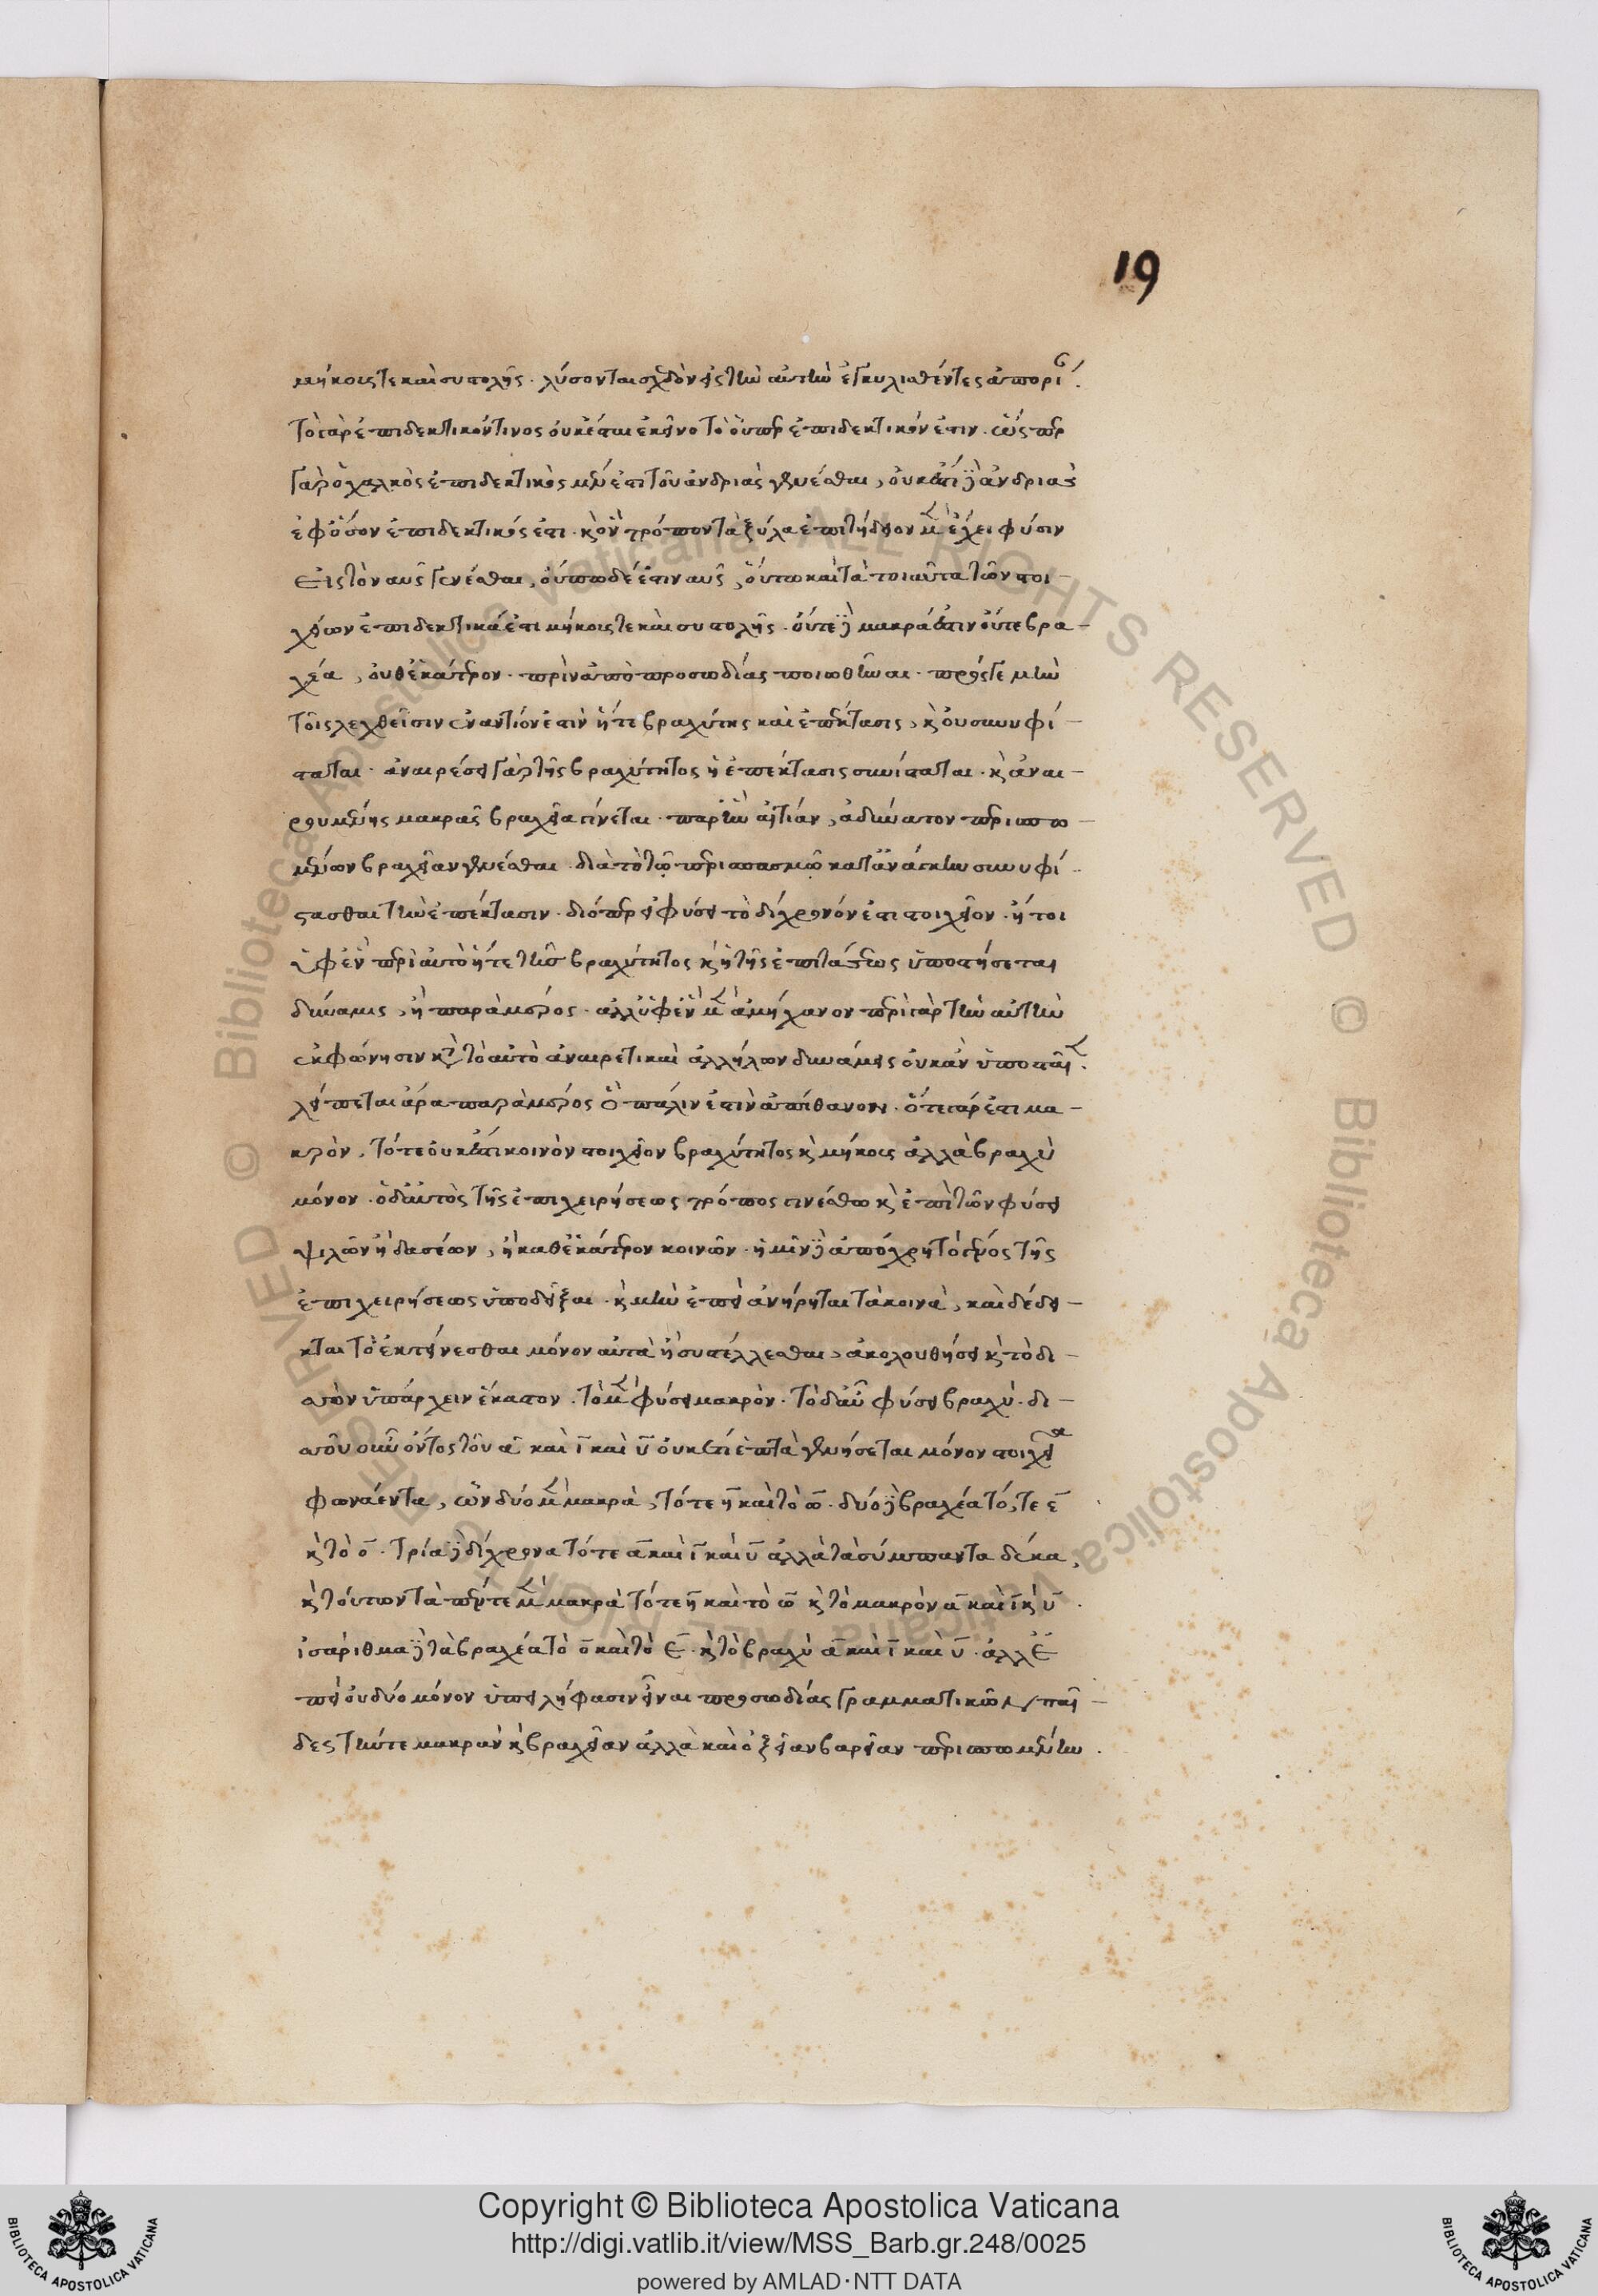 19
μήκους τε καὶ συστολῆς. λύσονται σχεδὸν εἰς τὴν αὐτὴν ἐγκυλισθέντες ἀπορί.
τὸ γὰρ ἐπιδεκτικόν τινος οὐκ ἔστιν ἐκεῖνο τὸ οὗπερ ἐπιδεκτικόν ἐστιν. ὥσπερ
γὰρ ὁ χαλκὸς ἐπιδεκτικὸς μέν ἐστι τοῦ ἀνδριὰς γενέσθαι, οὐκ ἔστι δὲ ἀνδριὰς
ἐφ' ὅσον ἐπιδεκτικός ἐστι. καὶ ὃν τρόπον τὰ ξύλα ἐπιτήδειον μὲν ἔχει φύσιν
εἰς τὸ ναῦς γενέσθαι, οὔπω δέ ἐστιν ναῦς, οὕτω καὶ τὰ τοιαῦτα τῶν στοι-
χείων ἐπιδεκτικά ἐστι μήκους τε καὶ συστολῆς. οὔτε δὲ μακρά ἐστιν οὔτε βρα-
χέα, οὐθ' ἑκάτερον. πρὶν ἀπὸ προσῳδίας ποιωθῆναι. πρός γε μὴν
τοῖς λεχθεῖσιν ἐναντίον ἐστὶν ἥ τε βραχύτης καὶ ἐπέκτασις, καὶ οὐ συνυφί-
σταται. ἀναιρέσει γὰρ τῆς βραχύτητος ἡ ἐπέκτασις συνίσταται. καὶ ἀναι-
ρουμένης μακρᾶς βραχεῖα γίνεται. παρ' ἣν αἰτίαν, ἀδύνατον περισπω-
μένων βραχεῖαν γενέσθαι. διὰ τὸ τῷ περισπασμῷ κατ' ἀνάγκην συνυφί-
στασθαι τὴν ἐπέκτασιν. διόπερ εἰ φύσει τὸ δίχρονόν ἐστι στοιχεῖον. ἤτοι
ὑφ' ἓν περὶ αὐτὸ ἥ τε τῆς βραχύτητος καὶ ἡ τῆς ἐπιτάσεως ὑποστήσεται
δύναμις, ἢ παρὰ μέρος. ἀλλ' ὑφ' ἓν μὲν ἀμήχανον περὶ γὰρ τὴν αὐτὴν
ἐκφώνησιν κατὰ τὸ αὐτὸ ἀναιρετικαὶ ἀλλήλων δυνάμεις οὐκ ἂν ὑποσταῖεν.
λείπεται ἄρα παρὰ μέρος ὃ πάλιν ἐστὶν ἀπίθανον. ὅτε γάρ ἐστι μα-
κρὸν, τότε οὐκ ἔστι κοινὸν στοιχεῖον βραχύτητος καὶ μήκους ἀλλὰ βραχὺ
μόνον. ὁ δ' αὐτὸς τῆς ἐπιχειρήσεως τρόπος γινέσθω καὶ ἐπὶ τῶν φύσει
ψιλῶν ἢ δασέων, ἢ καθ' ἑκάτερον κοινῶν. ἡμῖν δὲ ἀπόχρη τὸ γένος τῆς
ἐπιχειρήσεως ὑποδεῖξαι. καὶ μὴν ἐπεὶ ἀνῄρηται τὰ κοινὰ, καὶ δέδει-
κται τὸ ἐκτείνεσθαι μόνον αὐτὰ ἢ συστέλλεσθαι, ἀκολουθήσει καὶ τὸ δι-
σσὸν ὑπάρχειν ἕκαστον. τὸ μὲν φύσει μακρὸν. τὸ δ' αὖ φύσει βραχὺ. δι-
σσοῦ οὖν ὄντος τοῦ α καὶ ι καὶ υ οὐκέτι ἑπτὰ γενήσεται μόνον στοιχεῖα
φωνάεντα, ὧν δύο μὲν μακρὰ, τό τε η καὶ τὸ ω. δύο δὲ βραχέα τό, τε ε
καὶ τὸ ο. τρία δὲ δίχρονα τό τε α καὶ ι καὶ υ ἀλλὰ τὰ σύμπαντα δέκα,
καὶ τούτων τὰ πέντε μὲν μακρὰ τό τε η καὶ τὸ ω καὶ τὸ μακρὸν α καὶ ι καὶ υ.
ἰσάριθμα δὲ τὰ βραχέα τὸ ο καὶ τὸ ε. καὶ τὸ βραχὺ α καὶ ι καὶ υ. ἀλλ' ἐ
πεὶ οὐ δύο μόνον ὑπειλήφασιν εἶναι προσῳδίας γραμματικῶν παῖ-
δες τήν τε μακρὰν καὶ βραχεῖαν ἀλλὰ καὶ ὀξεῖαν βαρεῖαν περισπωμένην.
Copyright © Biblioteca Apostolica Vaticana
http://digi.vatlib.it/view/MSS_Barb.gr.248/0025
powered by AMLAD·NTT DATA